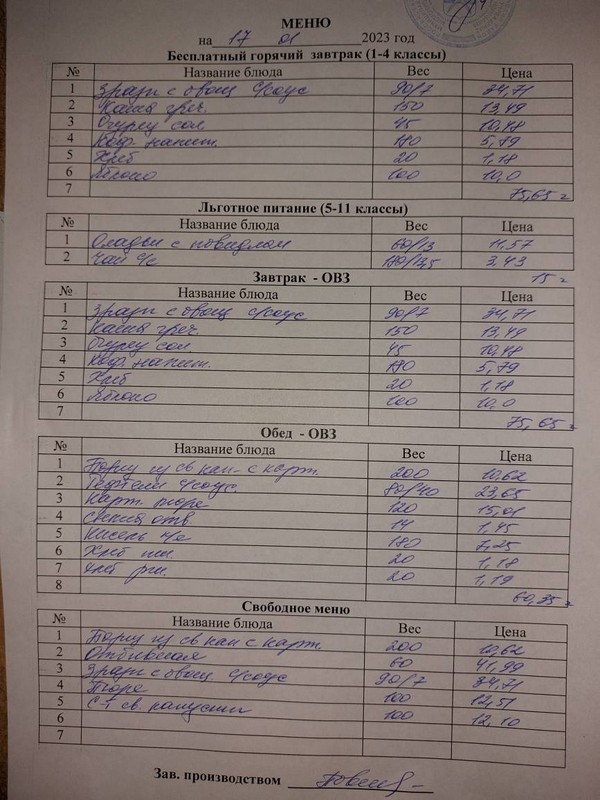 МЕНЮ
на 17 01 2023 год
Бесплатный горячий завтрак (1-4 классы)
№ Название блюда Вес Цена
1 Зразы с овощ с/соус 90/7 34,71
2 Каша греч. 150 13,49
3 Огурец сол. 45 10,48
4 Коф. напит. 180 5,79
5 Хлеб 20 1,18
6 Яблоко 100 10,0
7 75,65
Льготное питание (5-11 классы)
№ Название блюда Вес Цена
1 Оладьи с повидлом 60/13 11,57
2 Чай с/с 180/13,5 3,43
15
Завтрак - ОВЗ
№ Название блюда Вес Цена
1 Зразы с овощ с/соус 90/7 34,71
2 Каша греч. 150 13,49
3 Огурец сол. 45 10,48
4 Коф. напит. 180 5,79
5 Хлеб 20 1,18
6 Яблоко 100 10,0
7 75,65
Обед - ОВЗ
№ Название блюда Вес Цена
1 Борщ из св кап с карт. 200 10,62
2 Тефтели с/соус. 80/40 23,65
3 Карт. пюре 120 15,01
4 отв. 14 1,45
5 Кисель 180 7,25
6 Хлеб пш. 20 1,18
7 Хлеб рж. 20 1,19
8 60,35
Свободное меню
№ Название блюда Вес Цена
1 Борщ из св кап с карт. 200 10,62
2 Отбивная 60 41,99
3 Зразы с овощ с/соус 90/7 34,71
4 Пюре 100 12,51
5 С-т св. капусты 100 12,10
6
7
Зав. производством